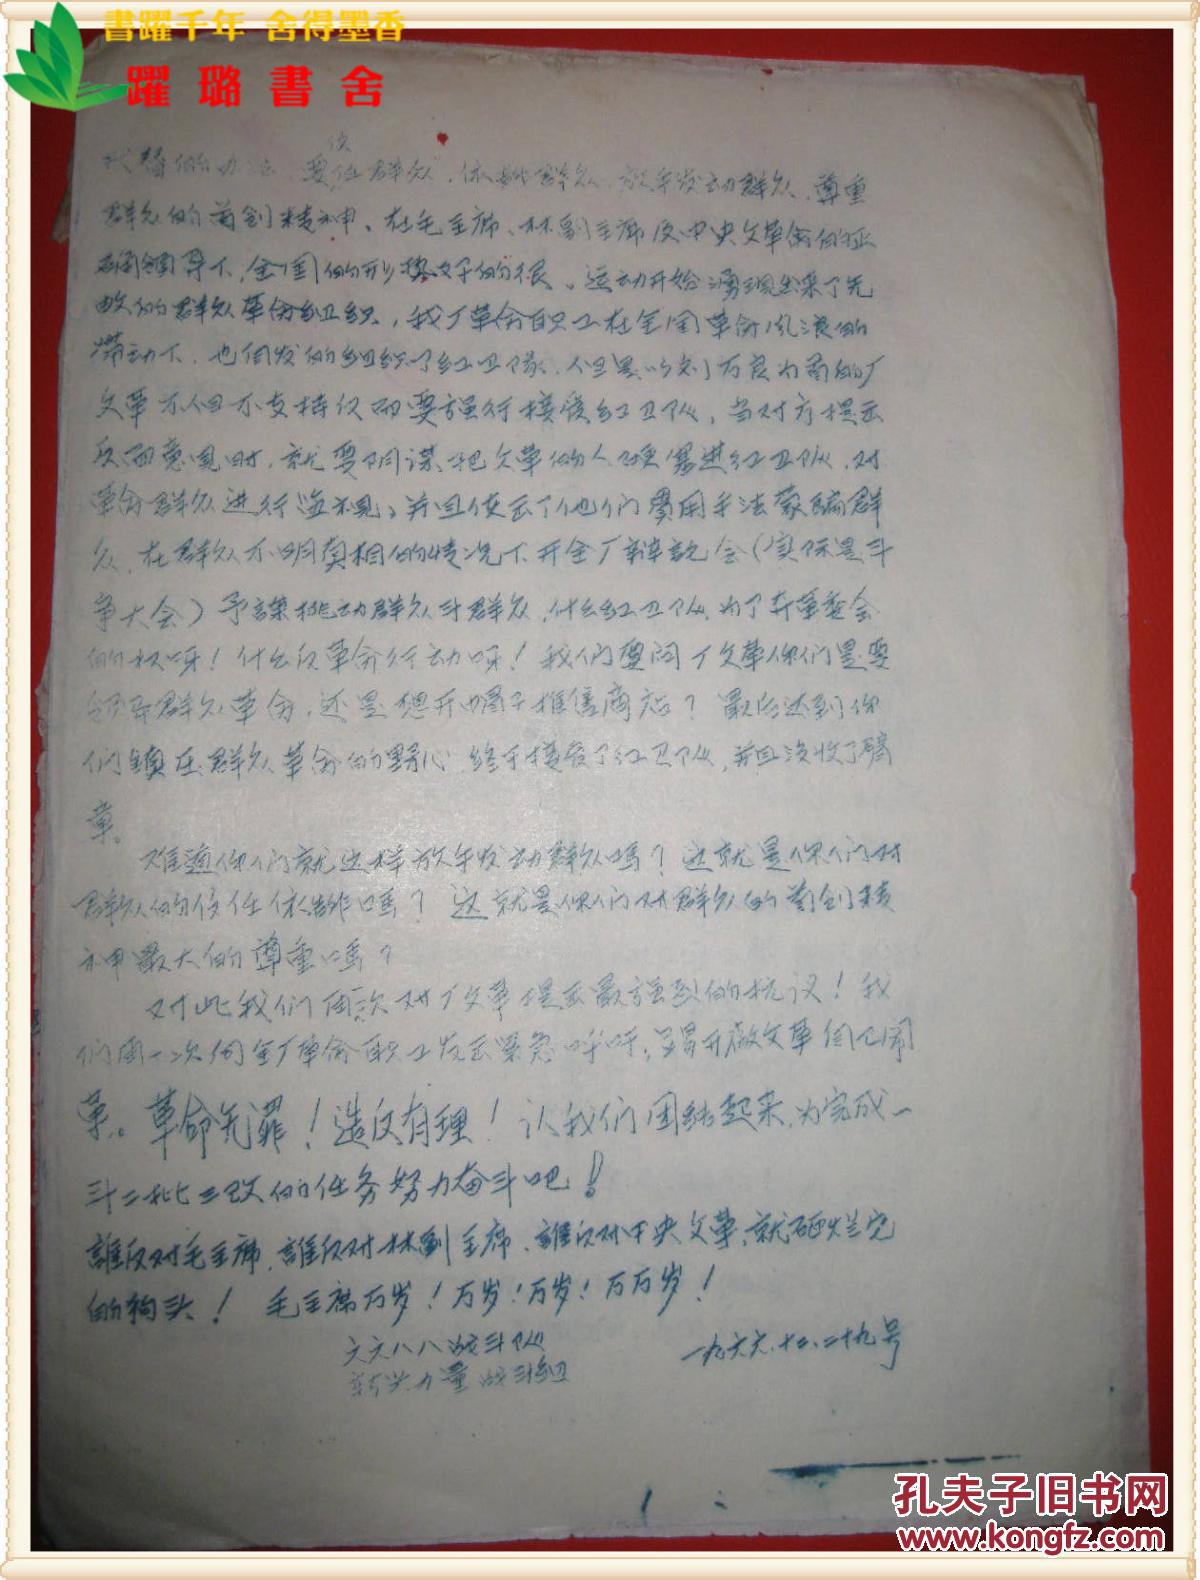 書躍千年 舍得墨香
躍璐書舍
代替的办法，要信任群众，依靠群众，放手发动群众，尊重
群众的首创精神。在毛主席、林副主席及中央文革的正
确领导下，全国的形势好的很。运动开始湧现出来了无
数的群众革命组织，我厂革命职工在全国革命风浪的
带动下，也自发的组织了红卫队，但是以刘万良为首的厂
文革不但不支持反而要强行接受红卫队，当对方提出
反面意见时，就要阴谋把文革的人硬塞进红卫队，对
革命群众进行监视，并且使出了他们惯用手法蒙骗群
众，在群众不明真相的情况下开全厂辩説会（实际是斗
争大会）予謀挑动群众斗群众，什么红卫队为了夺革委会
的权呀！什么反革命行动呀！我们要问厂文革你们是要
领导群众革命，还是想开帽子推售商店？最后达到你
们镇压群众革命的野心，终于接受了红卫队，并且没收了臂
章。
难道你们就这样放手发动群众嗎？这就是你们对
群众的信任依靠嗎？这就是你们对群众的首创精
神最大的尊重嗎？
对此我们再次对厂文革提出最强烈的抗议！我
们再一次向全厂革命职工发出紧急呼吁，踢开厂文革自己闹
革。革命无罪！造反有理！让我们团结起来，为完成一
斗二批三改的任务努力奋斗吧！
誰反对毛主席，誰反对林副主席，誰反对中央文革，就砸烂它
的狗头！ 毛主席万岁！万岁！万岁！万万岁！
六六八八战斗队
新生力量战斗组
一九六六.十二.二十九号
孔夫子旧书网
www.kongfz.com